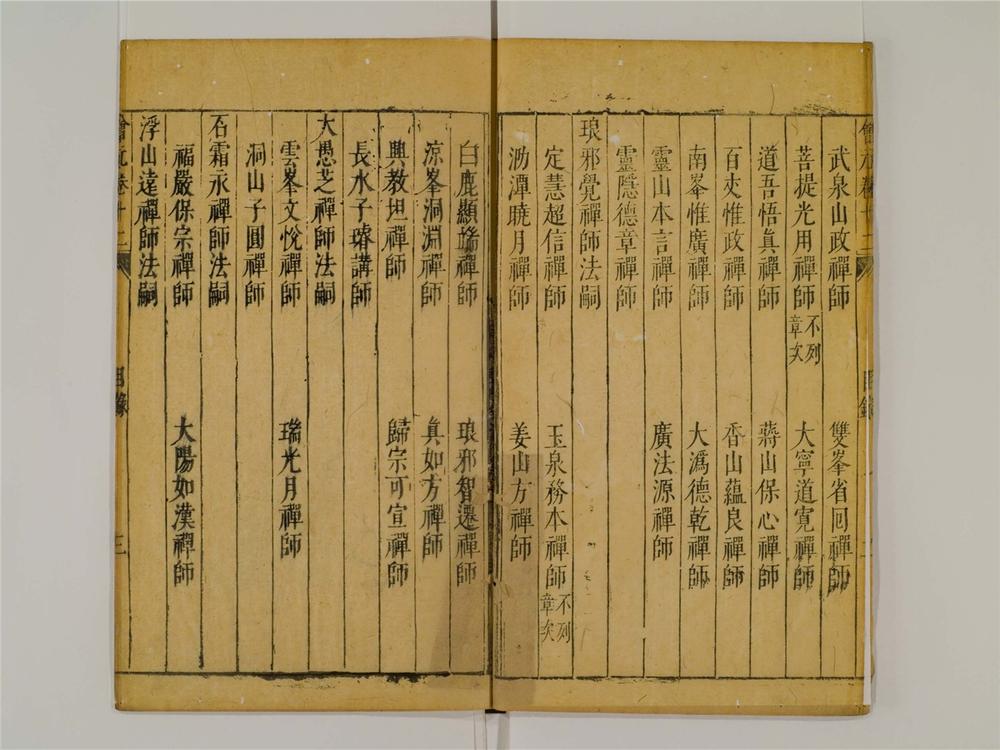 武泉山政禪師 雙峯省回禪師
菩提光用禪師 不列章次 大寧道寬禪師
道吾悟眞禪師 蔣山保心禪師
百丈惟政禪師 香山蘊良禪師
南峯惟廣禪師 大溈德乾禪師
靈山本言禪師 廣法源禪師
靈隱德章禪師
琅邪覺禪師法嗣
定慧超信禪師 玉泉務本禪師 不列章次
泐潭曉月禪師 姜山方禪師
白鹿顯端禪師 琅邪智遷禪師
涼峯洞淵禪師 眞如方禪師
興教坦禪師 歸宗可宣禪師
長水子璿講師
大愚芝禪師法嗣
雲峯文悅禪師 瑞光月禪師
洞山子圓禪師
石霜永禪師法嗣
福嚴保宗禪師 大陽如漢禪師
浮山遠禪師法嗣
會元卷十二 目錄 三